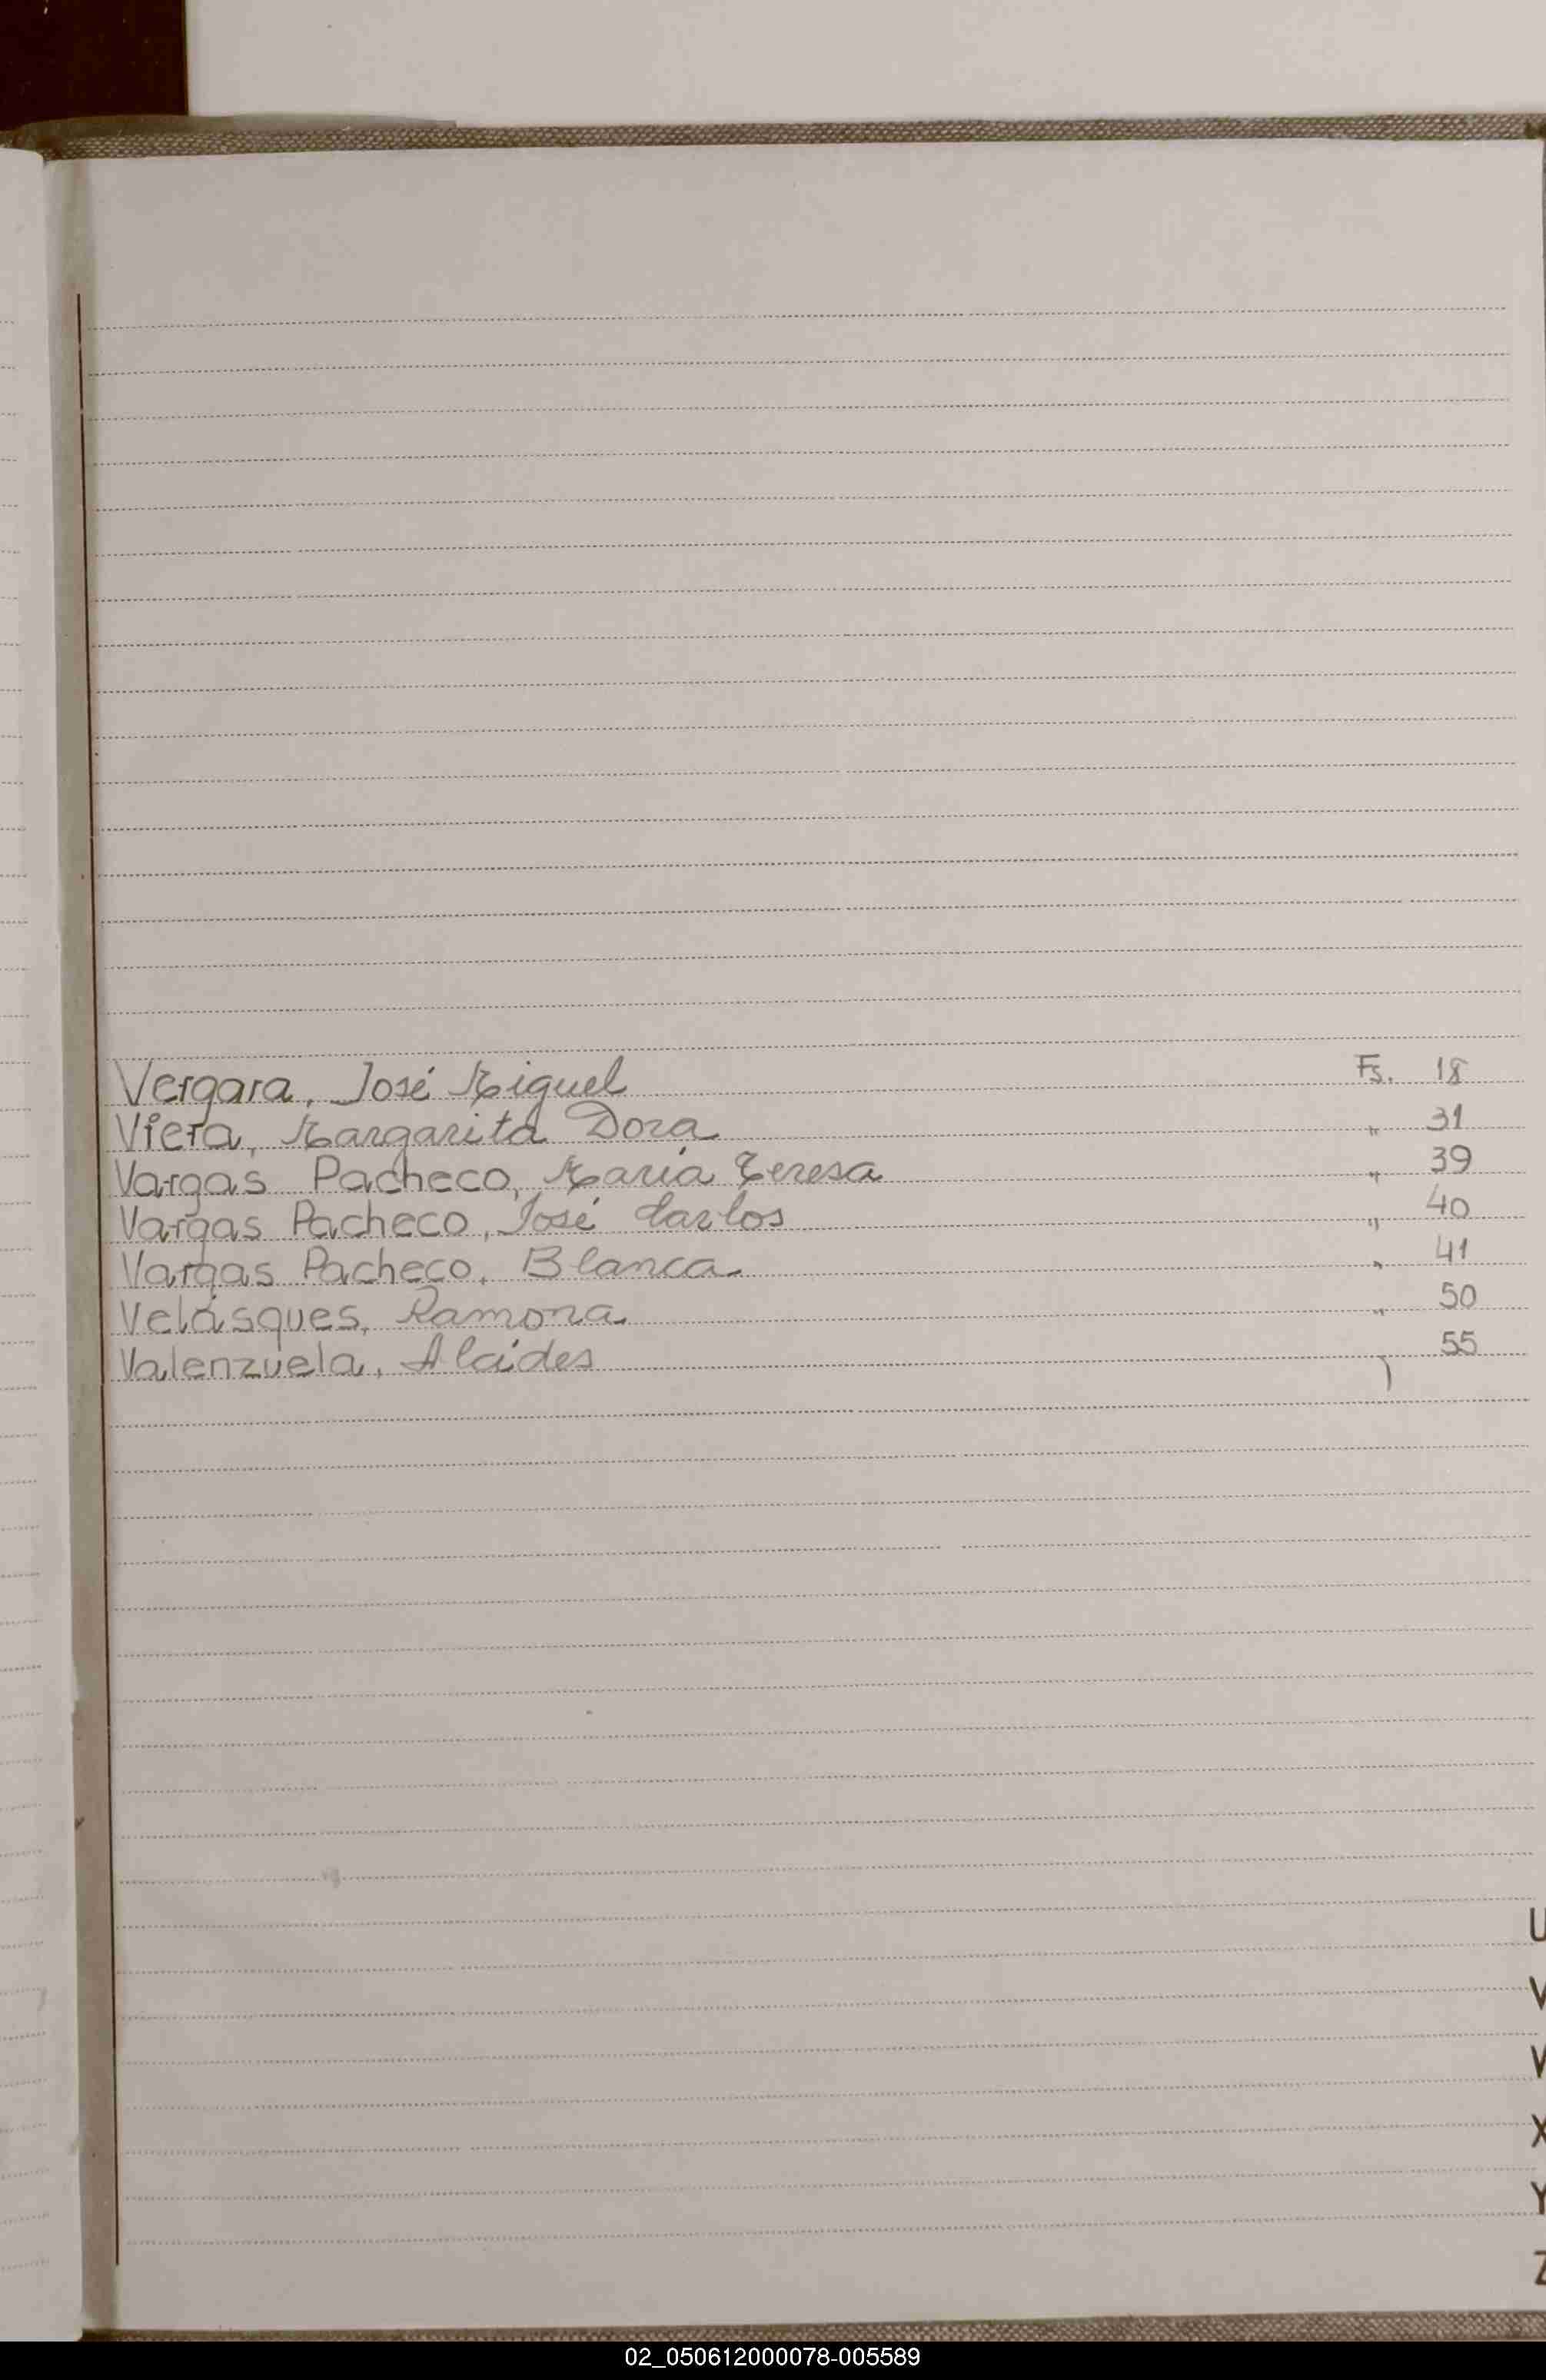 Vergara, José Miguel Fs. 18
Viera, Margarita Dora " 31
Vargas Pacheco, María Teresa " 39
Vargas Pacheco, José Carlos " 40
Vargas Pacheco, Blanca " 41
Velásques, Ramona " 50
Valenzuela, Alcides 55
U
V
W
X
Y
Z
02_050612000078-005589